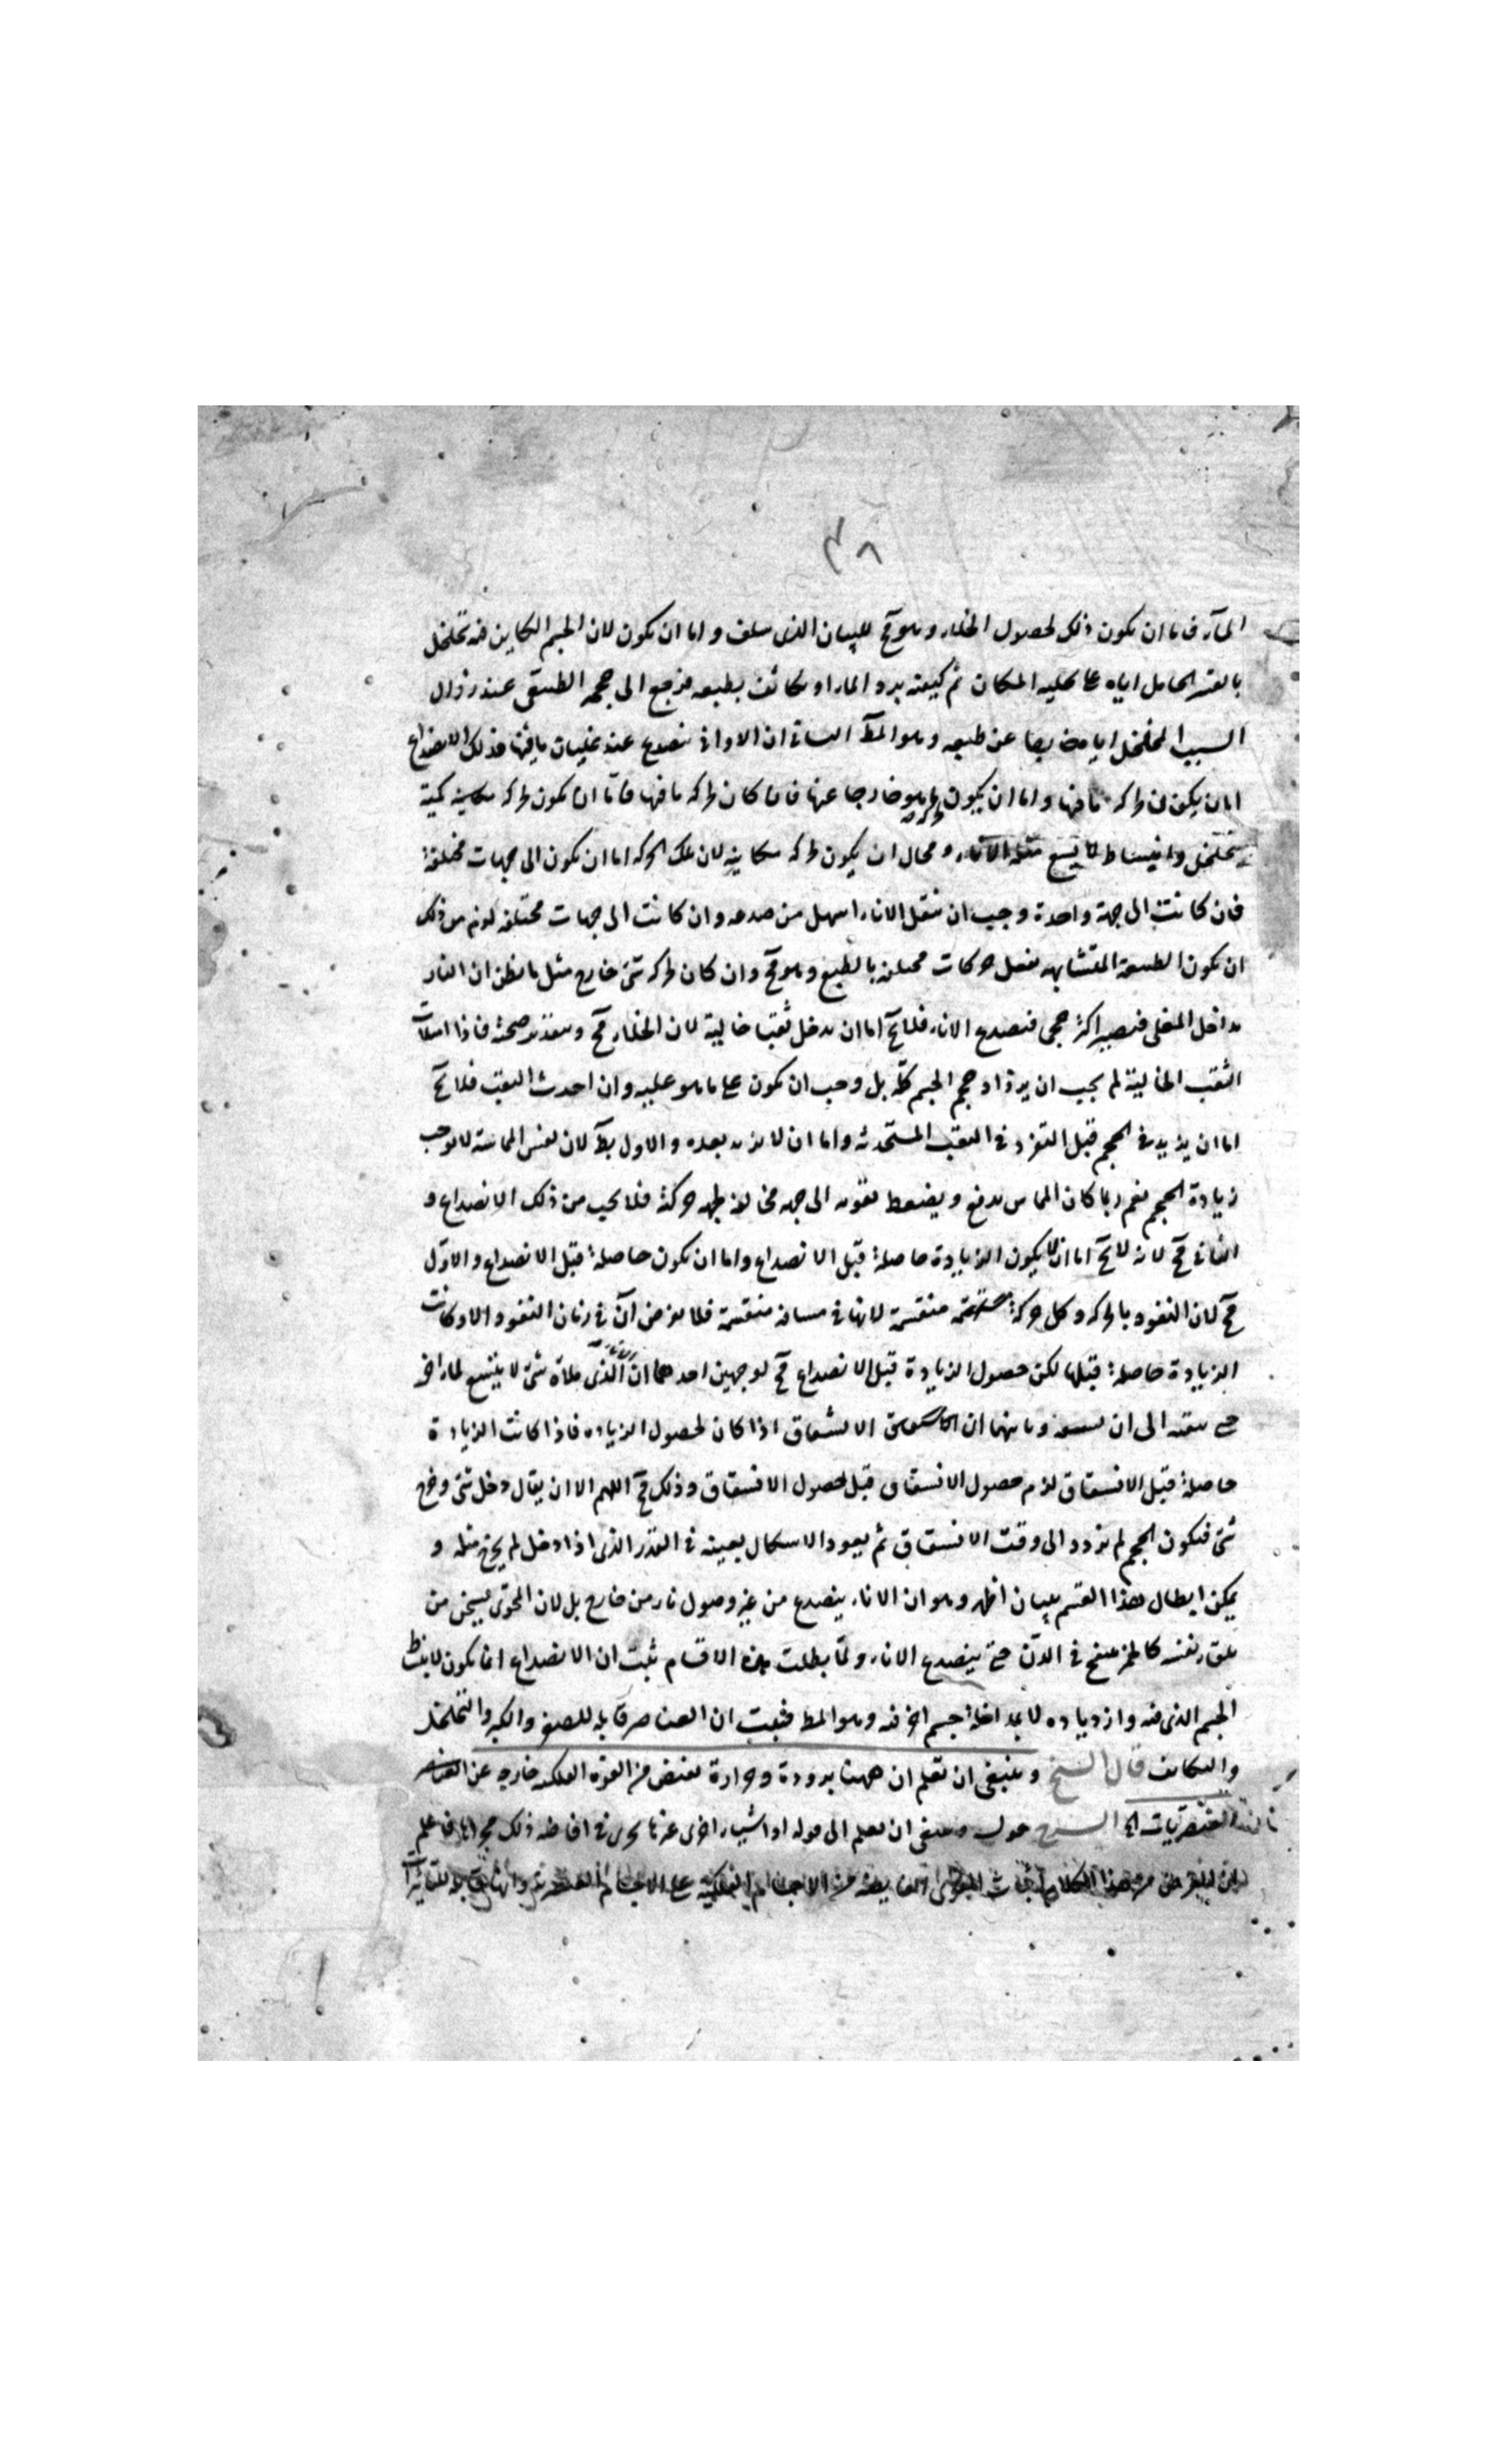 ٣٨
الماء فاما ان يكون ذلك لحصول الخلاء وهو مح للبيان الذى سلف واما ان يكون لان الجسم الكاين فيه تخلخل
بالقسر الحامل اياه على تخليه المكان ثم كيفته برد الماء او تكاثف بطبعه فرجع الى حجمه الطبيعى عند زوال
السبب المخلخل اياه عن طبعه وهو المط الثانى ان الاوانى تنصدع عند غليان ما فيها فذلك الانصداع
اما ان يكون لحركه ما فيها واما ان يكون لحركه ما هو خارجا عنها فان كان لحركه ما فيها فاما ان يكون لحركه مكانيه كمية
تخلخل وانبساط لا يسع مثله الاناء ومحال ان يكون لحركه مكانيه لان تلك الحركه اما ان يكون الى جهات مختلفة
فان كانت الى جهة واحدة وجب ان ينقل الاناء اسهل من صدعه وان كانت الى جهات مختلفه لزم من ذلك
ان يكون الطبيعة المتشابهه تفعل حركات مختلفه بالطبع وهو مح وان كان لحركه شئ خارج مثل ما يظن ان النار
يداخل المغلى فيصير اكثر حجمى فينصدع الاناء فلا يخ اما ان يدخل ثقبا خالية لان الخلاء مح فاذا امتلات
الثقب الخالية لم يجب ان يزداد حجم الجسم كله بل وجب ان يكون على ما هو عليه وان احدث الثقب فلا يخ
اما ان يزيد فى الحجم قبل النفوذ فى الثقب المستحدثه واما ان لا يزيد بعده والاول بط لان نفس المماسة لا يوجب
زيادة الحجم نعم ربما كان المماس يدفع ويضغط بقوته الى جهه مخالفة لجهه حركته فلا يجب من ذلك الانصداع و
الثانى مح لانه لا يخ اما ان لا يكون الزيادة حاصلة قبل الانصداع واما ان يكون حاصلة قبل الانصداع والاول
مح لان النفوذ بالحركه وكل حركة منقسمة لانها فى مسافه منقسمة فلا يفرض آن فى زمان النفوذ الا وكانت
الزيادة حاصلة قبلها لكن حصول الزيادة قبل الانصداع مح لوجهين احدهما ان الاناء الذى ملاه شئ لا يتسع لماء اخر
حتى ينفذ الى ان يسعه وثانيهما ان الانشقاق اذا كان لحصول الزياده فاذا كانت الزيادة
حاصلة قبل الانشقاق لزم حصول الانشقاق قبل حصول الانشقاق وذلك مح اللهم الا ان يقال دخل شئ وخرج
شئ فيكون الحجم لم يزدد الى وقت الانشقاق ثم يعود الاشكال بعينه فى القدر الذى اذا دخل لم يخرج مثله و
يمكن ابطال هذا القسم ببيان اظهر وهو ان الاناء ينصدع من غير وصول نار من خارج بل لان المحوى يسخن من
تلقاء نفسه كالخمر ينفخ فى الدن حتى ينصدع الاناء ولما بطلت هذه الاقسام ثبت ان الانصداع انما يكون لانبساط
الجسم الذى فيه وازدياده لا بمداخلة جسم اخر فيه وهو المط فثبت ان العناصر قابله للصغر والكبر والتخلخل
والتكاثف قال الشيخ وينبغى ان تعلم ان ههنا برودة وحرارة تفيض من القوه الفلكيه خارجه عن العناصر
العنصريات الى الشرح قوله وينبغى ان تعلم الى قوله او اشياء اخرى غير ما يجرى فى افاضه ذلك مجراها فاعلم
ان الغرض من هذا الكلام اثبات القوى الفايضه من الاجسام الفلكية على الاجسام العنصرية وانها قابله للتأثيرات